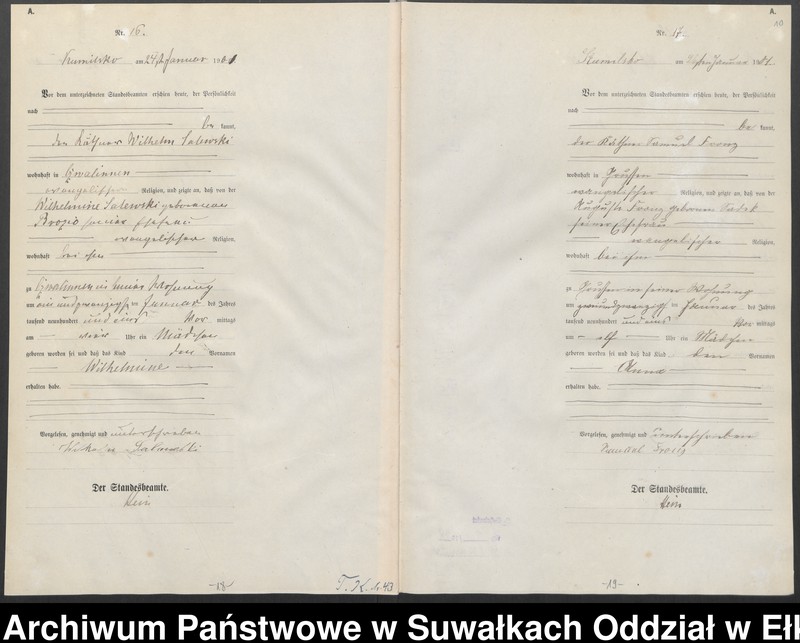 A.
Nr. 16.
Kumilsko am 24ten Januar 1901
Vor dem unterzeichneten Standesbeamten erschien heute, der Persönlichkeit
nach
be kannt,
der Käthner Wilhelm Salewski
wohnhaft in
evangelischer Religion, und zeigte an, daß von der
Wilhelmine Salewski geborenen
seiner Ehefrau
evangelischer Religion,
wohnhaft bei ihm
zu in seiner Wohnung
am ein und zwanzigsten Januar des Jahres
tausend neunhundert und eins Vor mittags
um vier Uhr ein Mädchen
geboren worden sei und daß das Kind den Vornamen
Wilhelmine
erhalten habe.
Vorgelesen, genehmigt und unterschrieben
Wilhelm Salewski
Der Standesbeamte.
Hein
-18-
T. K. 1.43
A.
10
Nr. 17.
Kumilsko am Januar 1901.
Vor dem unterzeichneten Standesbeamten erschien heute, der Persönlichkeit
nach
be kannt,
der Käthner Samuel Franz
wohnhaft in
evangelischer Religion, und zeigte an, daß von der
Auguste Franz geborenen
seiner Ehefrau
evangelischer Religion,
wohnhaft bei ihm
zu in seiner Wohnung
am Januar des Jahres
tausend neunhundert und eins Vor mittags
um elf Uhr ein Mädchen
geboren worden sei und daß das Kind den Vornamen
Anna
erhalten habe.
Vorgelesen, genehmigt und unterschrieben
Samuel Franz
Der Standesbeamte.
Hein
-19-
Archiwum Państwowe w Suwałkach Oddział w Eł